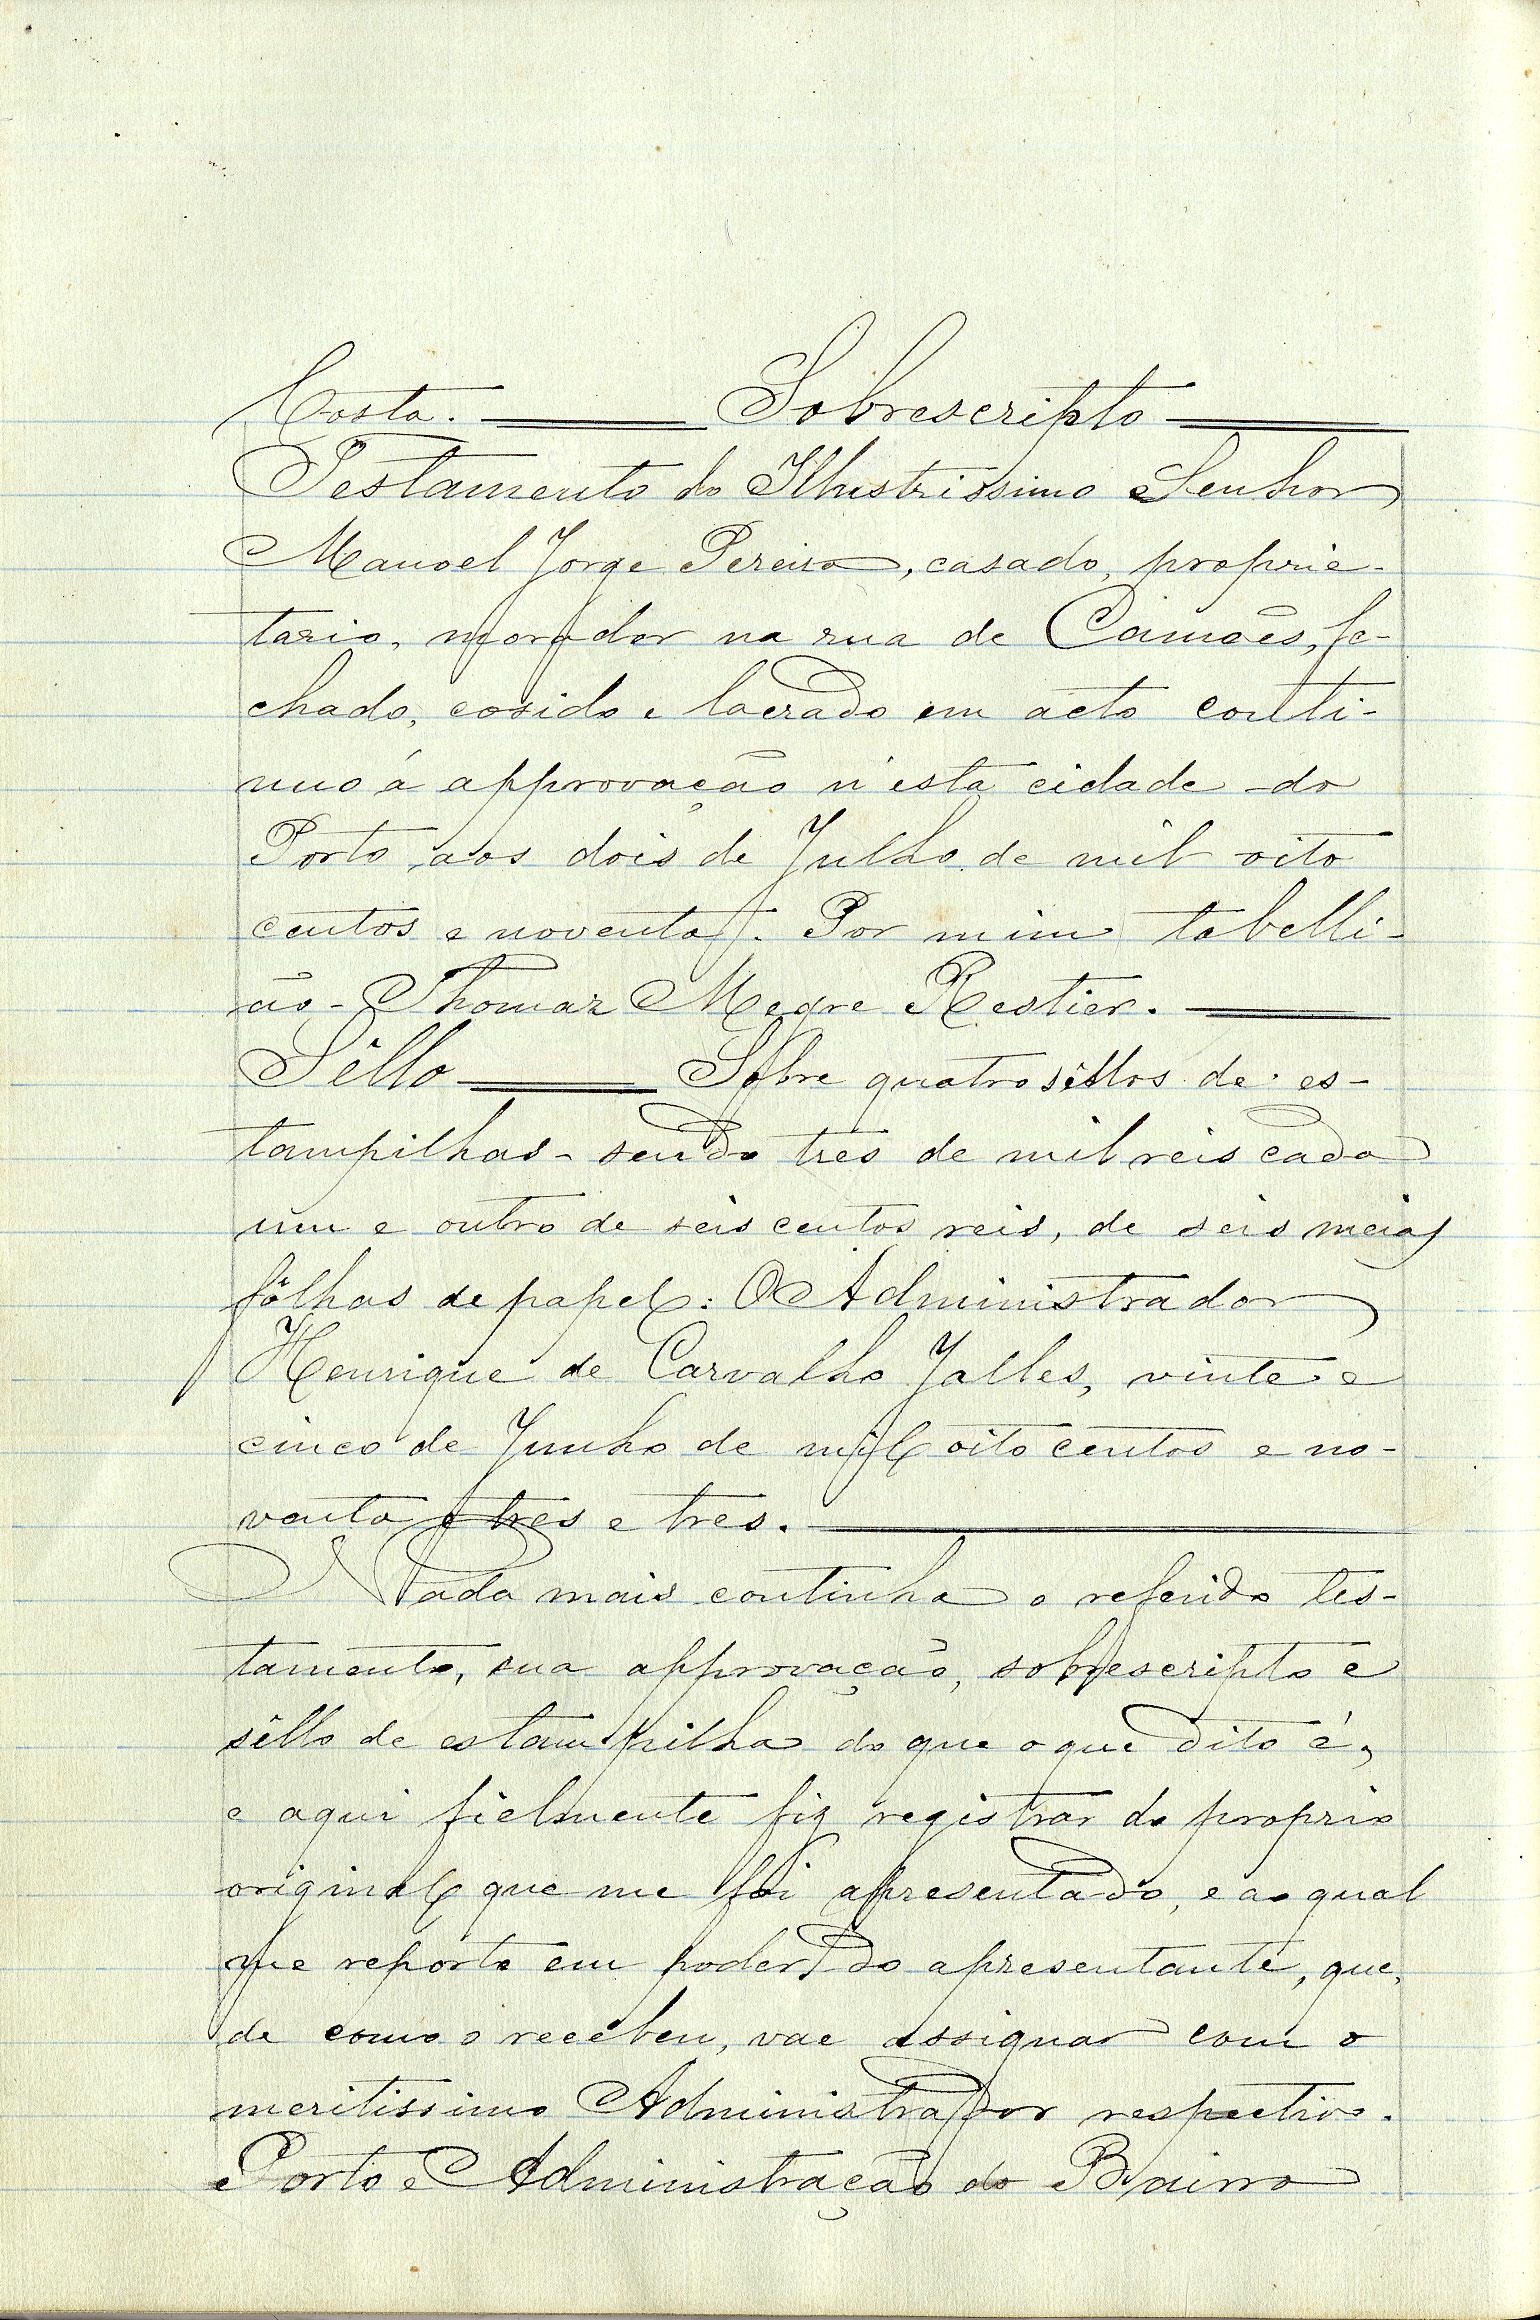 Costa. Sobrescripto
Testamento do Illustrissimo Senhor
Manoel Jorge Pereira, casado, proprie-
tario, morador na rua de Camões, fe-
chado, cosido e lacrado em acto conti-
nuo á approvação n'esta cidade do
Porto aos dois de Julho de mil oito
centos e noventa. Por mim tabelli-
ão - Thomaz Megre Restier.
Sêllo Sobre quatro sêllos de es-
tampilhas - sendo tres de mil reis cada
um e outro de seis centos reis, de seis meias
fôlhas de papel: O Administrador
Henrique de Carvalho Jalles, vinte e
cinco de Junho de mil oito centos e no-
venta e tres e tres.
Nada mais continha o referido tes-
tamento, sua approvação, sobrescripto e
sêllo de estampilha do que o que dito é,
e aqui fielmente fiz registrar do proprio
original que me foi apresentado, e ao qual
me reporto em poder do apresentante, que,
de como o recebeu, vae assignar com o
meritissimo Administrador respectivo.
Porto e Administração do Bairro